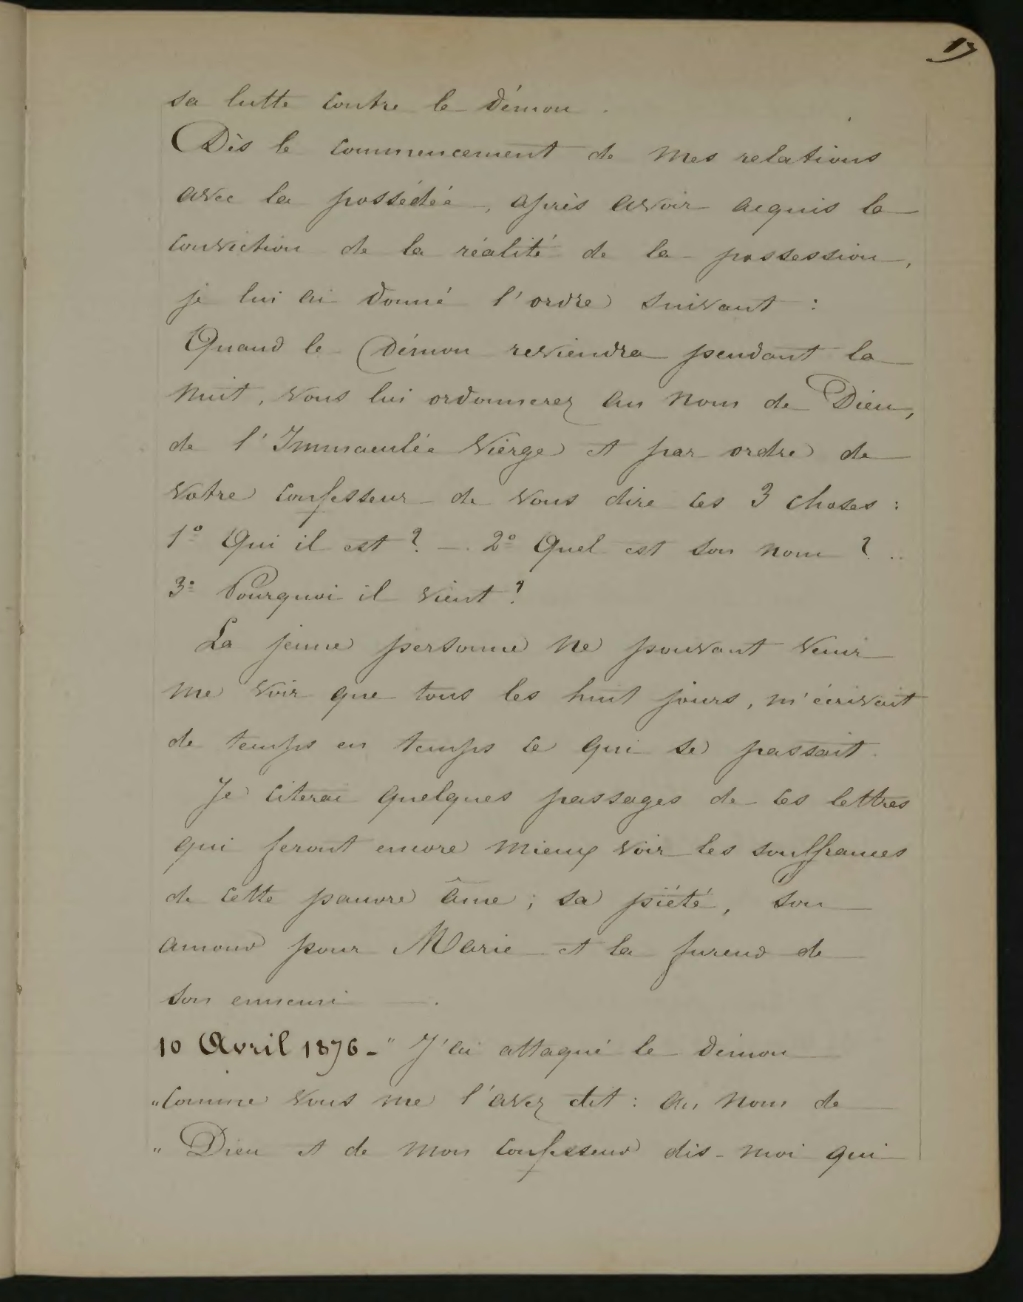 17
sa lutte contre le Démon.
Dès le commencement de mes relations
avec la possédée, après avoir acquis la
conviction de la réalité de la possession,
je lui ai donné l'ordre suivant :
Quand le Démon reviendra pendant la
nuit, vous lui ordonnerez au nom de Dieu,
de l'Immaculée Vierge et par ordre de
votre confesseur de vous dire ces 3 choses :
1º Qui il est ? — 2º Quel est son nom ? ..
3º Pourquoi il vient ?
La jeune personne ne pouvant venir
me voir que tous les huit jours, m'écrivait
de temps en temps ce qui se passait.
Je citerai quelques passages de ces lettres
qui feront encore mieux voir les souffrances
de cette pauvre âme ; sa piété, son
amour pour Marie et la fureur de
son ennemi — .
10 Avril 1876 - " J'ai attaqué le Démon
" comme vous me l'avez dit : au nom de
" Dieu et de mon confesseur dis-moi qui